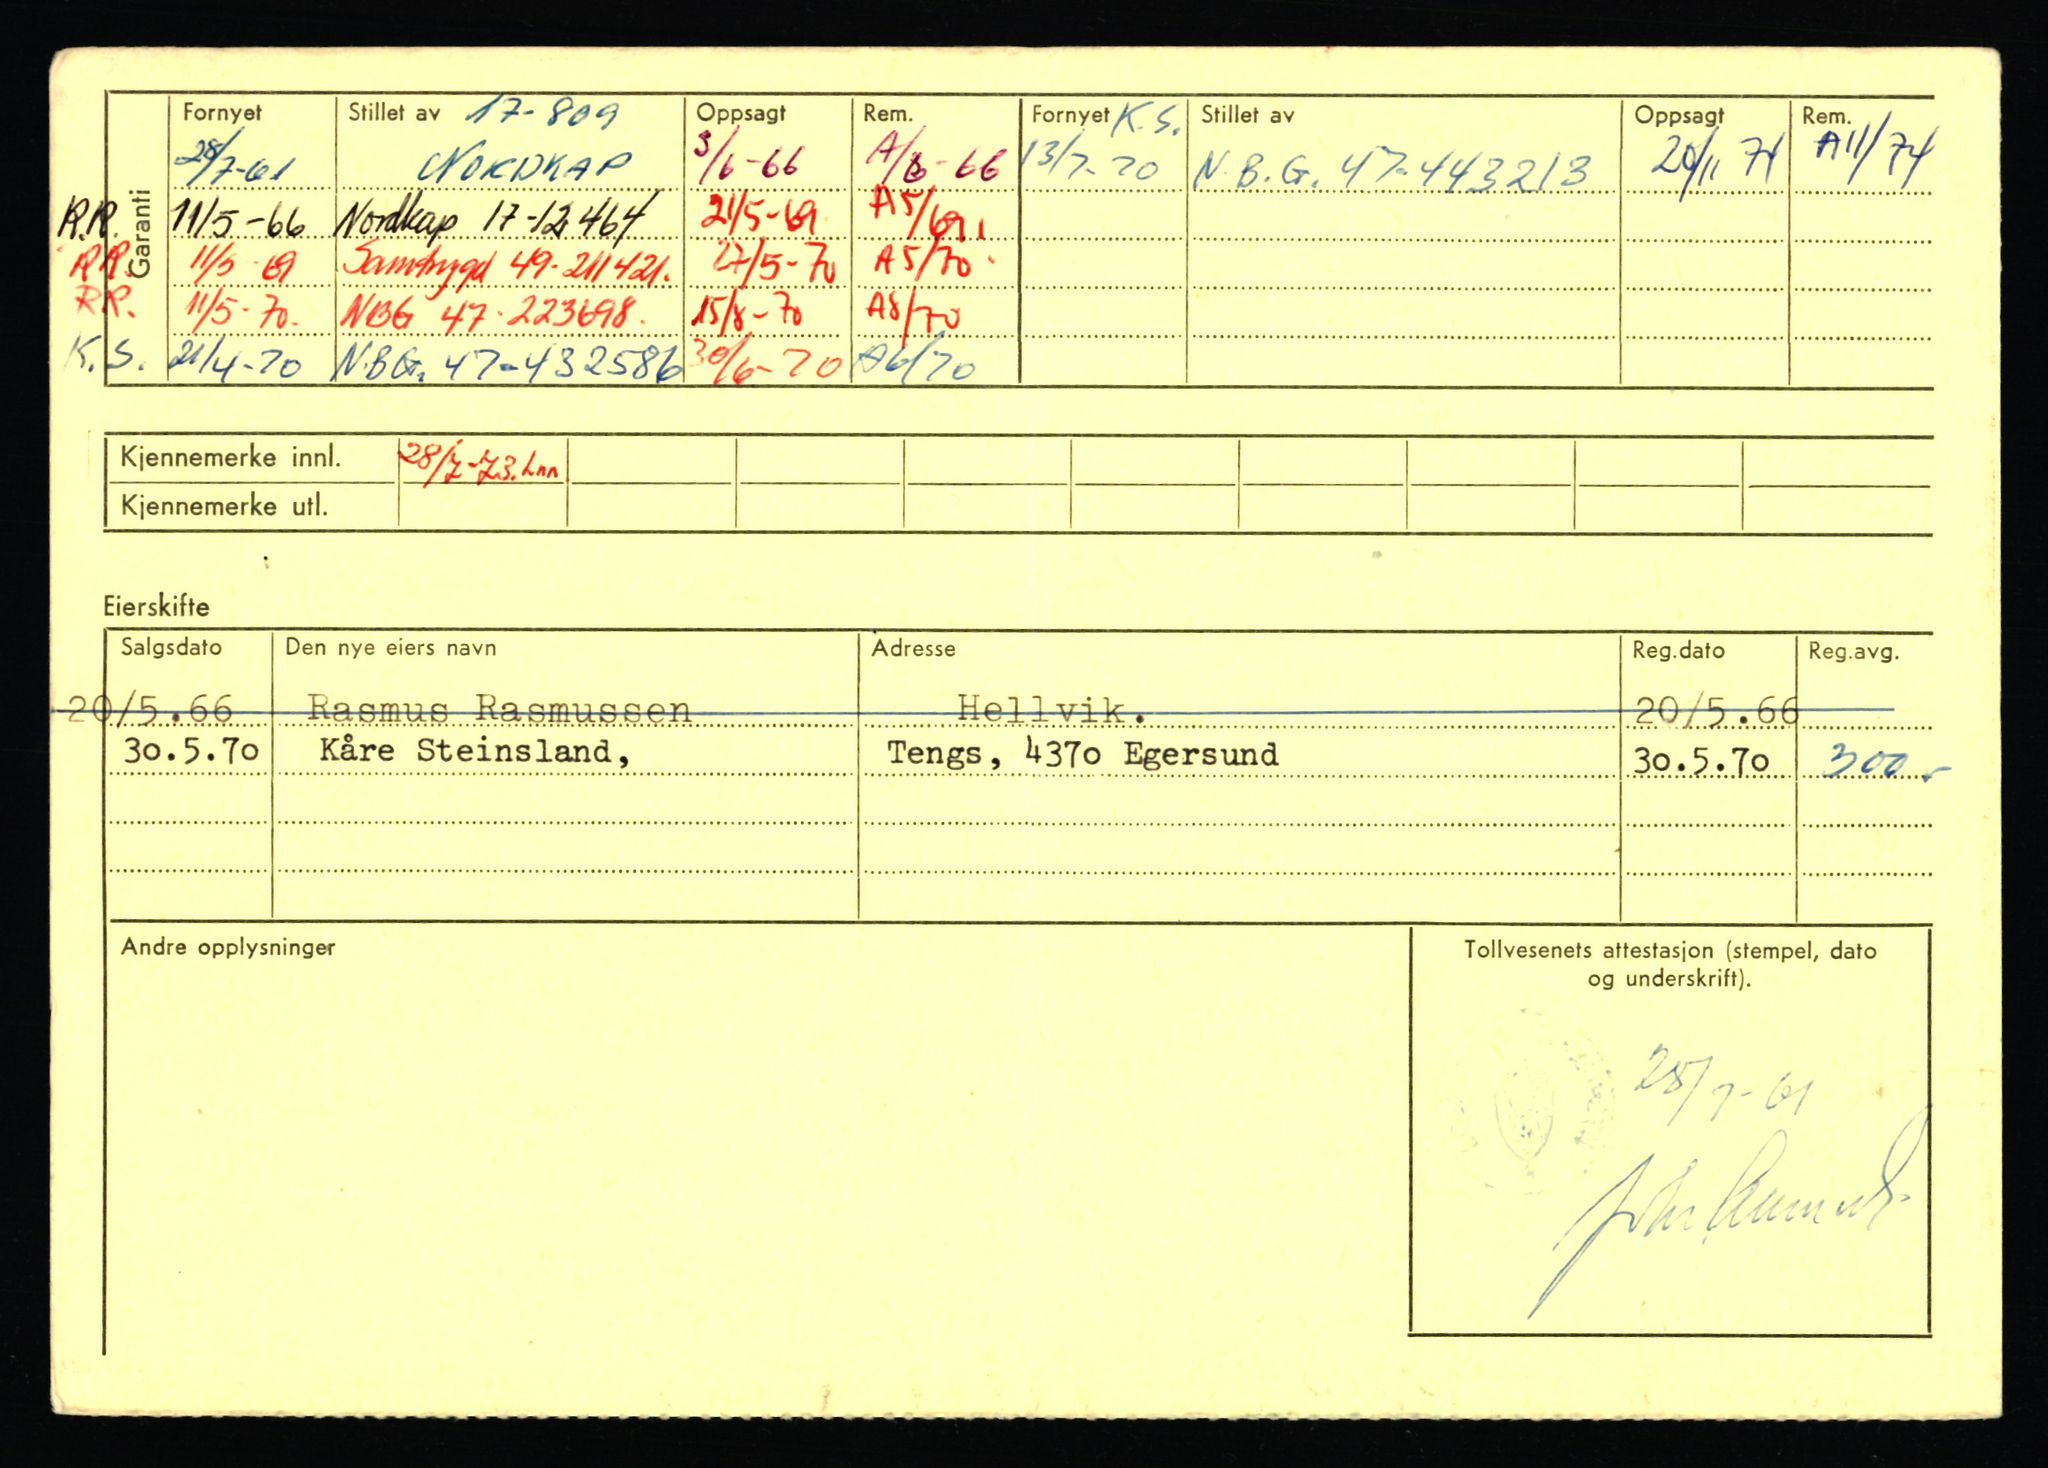 Fornyet Stillet av 17-809 Oppsagt Rem. Fornyet K.S. Stillet av Oppsagt Rem.
Garanti
28/7-61 NORDKAP 3/6-66 A/6-66 13/7-70 N.B.G. 47-443213 20/11 74 A11/74
R.R. 11/5-66 Nordkap 17-12464 21/5-69 A5/69
R.R. 11/5-69 Samtrygd 49-211421. 27/5-70 A5/70
R.R. 11/5-70. NBG 47-223698. 15/8-70 A8/70
K.S. 21/4-70 N.B.G. 47-432586 30/6-70 A6/70
Kjennemerke innl. 28/7-73. Lnn
Kjennemerke utl.
Eierskifte
Salgsdato Den nye eiers navn Adresse Reg.dato Reg.avg.
20/5.66 Rasmus Rasmussen Hellvik. 20/5.66
30.5.70 Kåre Steinsland, Tengs, 4370 Egersund 30.5.70 300.-
Andre opplysninger
Tollvesenets attestasjon (stempel, dato
og underskrift).
28/7-61